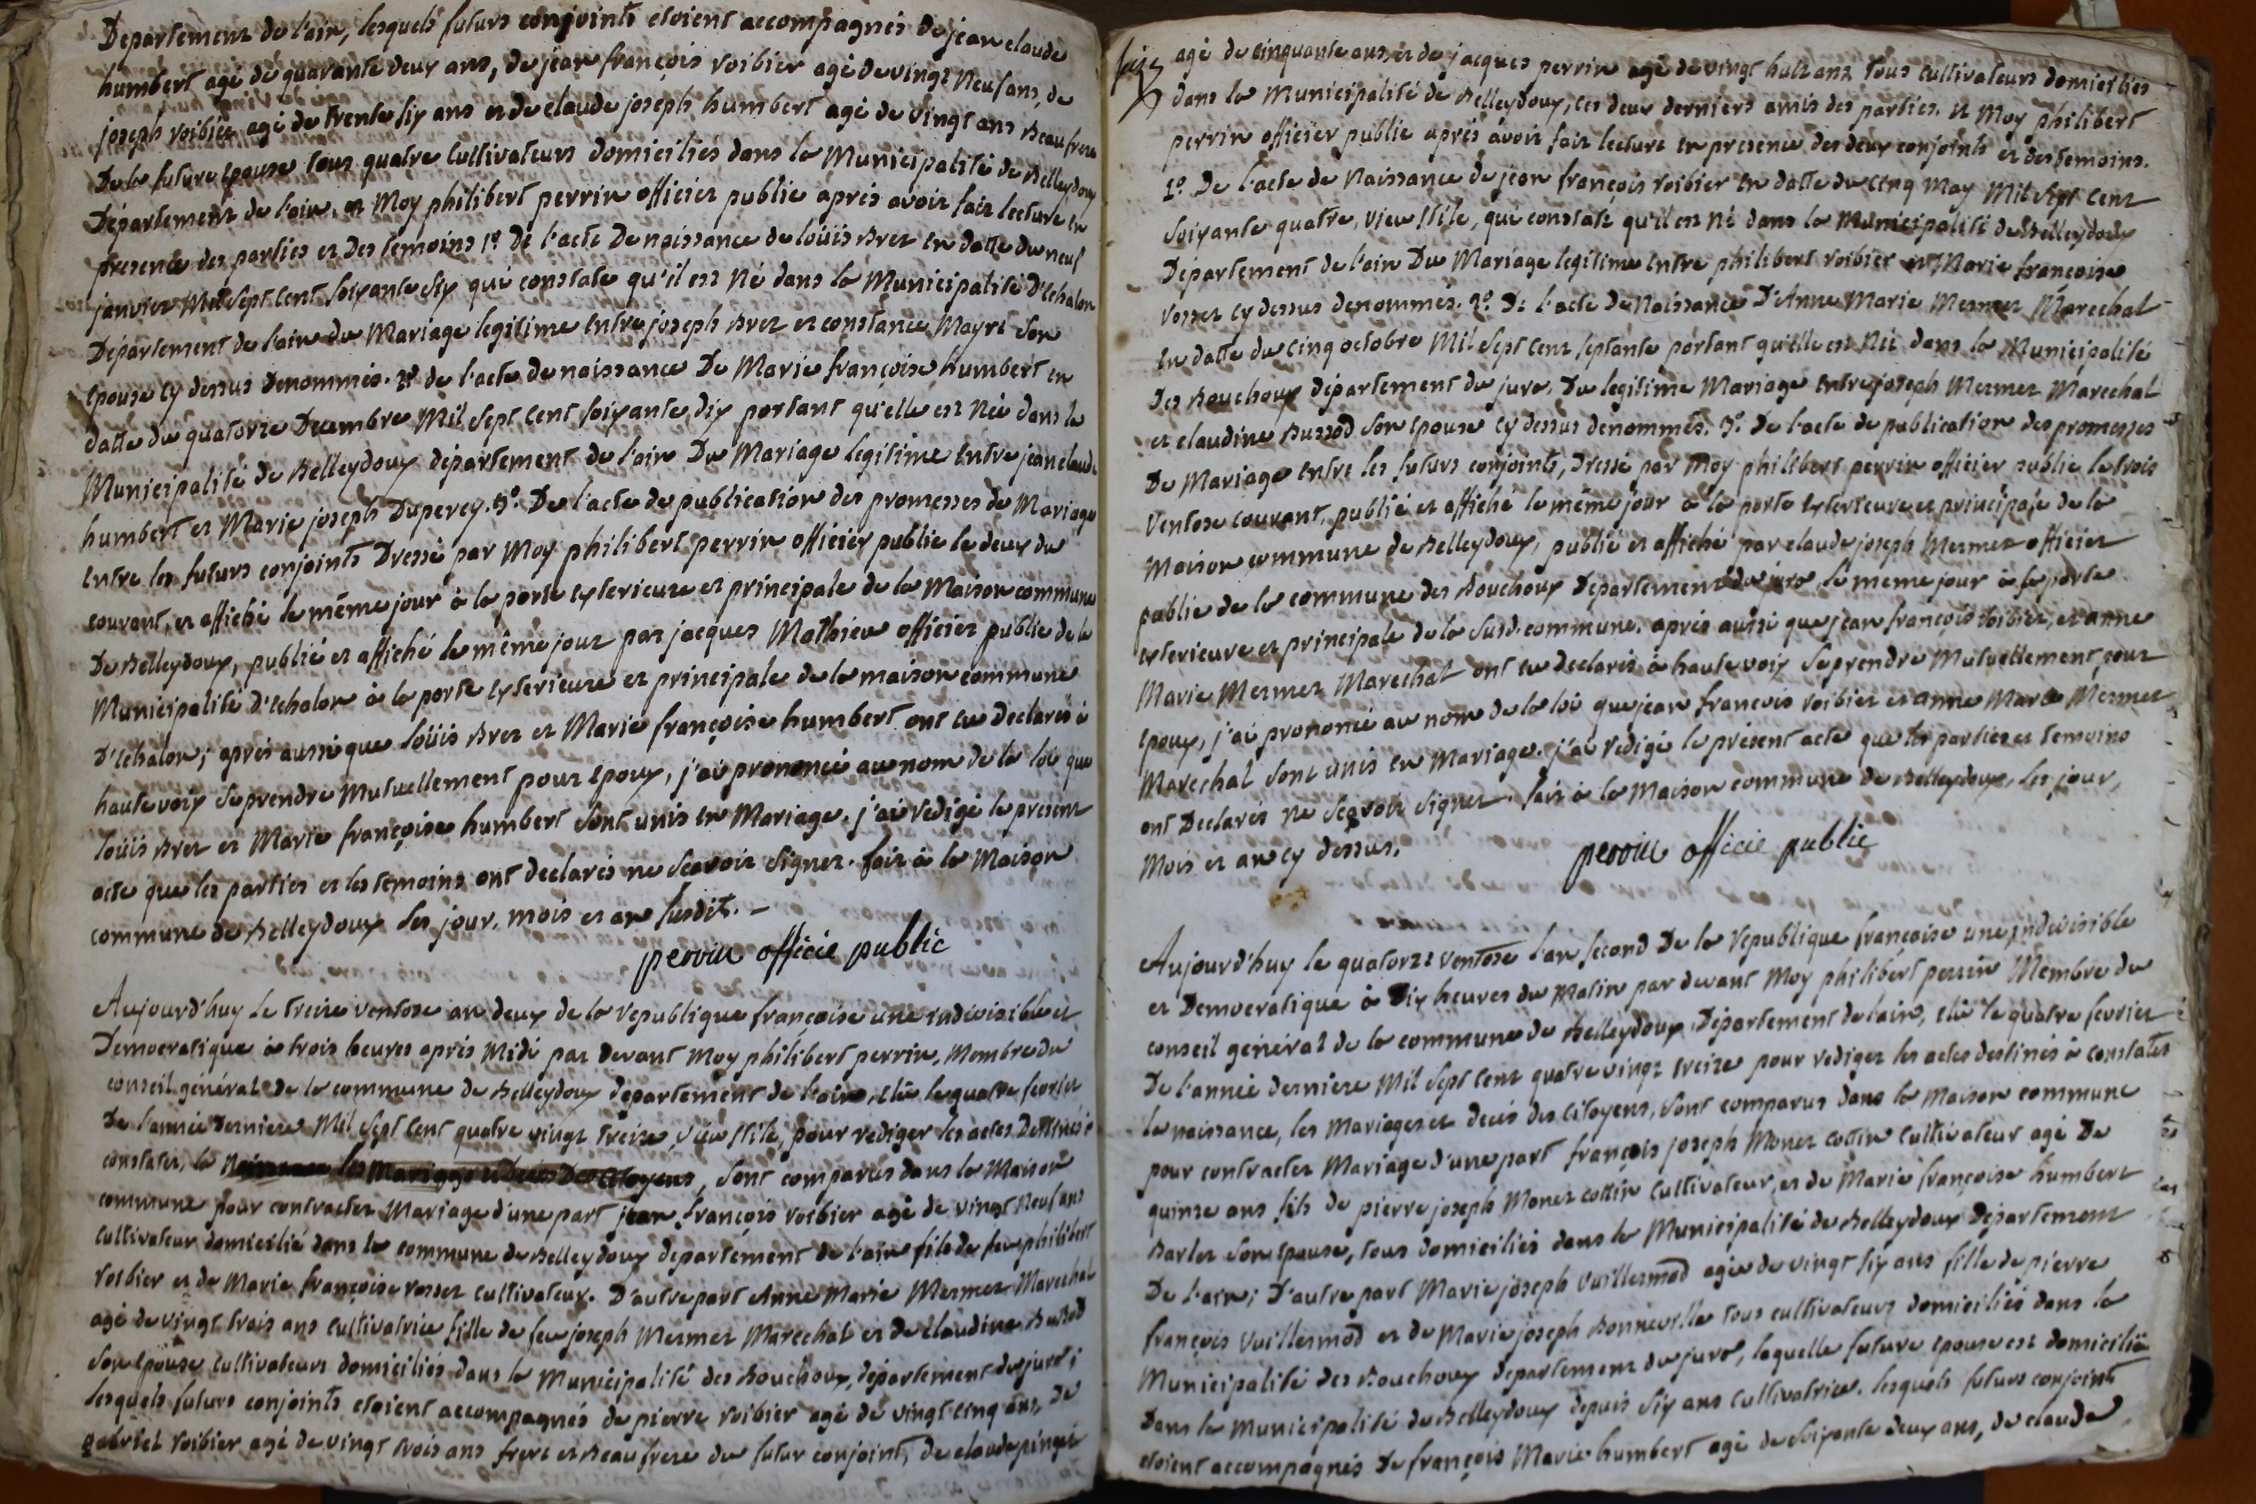 Departement de l'ain, lesquels futurs conjoints etoient accompagnés de jean claude
humbert agé de quarante deux ans, de jean françois roibier agé de vingt neuf ans, de
joseph roibier agé de trente six ans et de claude joseph humbert agé de vingt ans Beaufrere
De la future epouse tous quatre Cultivateurs domiciliés dans la Municipalité de Belleydoux
Département de l'ain, et Moy philibert perrin officier public après avoir fait lecture en
presence des parties et des temoins 1º. De l'acte De naissance de loüis Bret en datte du neuf
janvier Mil Sept Cent Soixante Six qui constate qu'il est Né dans la Municipalité D'Echalon
Département de l'ain du Mariage legitime entre joseph Bret et constance Mayrt Son
epouse cy dessus Denommés. 2º de l'acte de naissance De Marie françoise humbert en
datte du quatorze Decembre Mil Sept Cent Soixante dix portant qu'elle est Née dans la
Municipalité de Belleydoux département de l'ain Du Mariage legitime Entre jean claude
humbert et Marie joseph Duperey. 3º. De l'acte de publication des promesses de Mariage
entre les futurs conjoints Dressé par Moy philibert perrin officier public le deux du
courant, et affiché le même jour à la porte exterieure et principale de la Maison commune
De Belleydoux, publié et affiché le même jour par jacques Mathieu officier public de la
Municipalité d'Echalon à la porte exterieure et principale de la maison commune
D'Echalon; après aussi que loüis Bret et Marie françoise humbert ont eu declarés à
haute voix se prendre Mutuellement pour epoux, j'ai prononcé au nom de la loi que
loüis Bret et Marie françoise humbert Sont unis en Mariage. j'ai redigé le present
acte que les parties et les temoins ont declarés ne Scavoir signer. fait à la Maison
commune de Belleydoux les jour, mois et an susdit. -
perrin officie public
Aujourd'huy le treize ventose an deux de la republique françoise une indivisible et
Democratique à trois heures après Midi par devant Moy philibert perrin, Membre du
conseil général de la commune de Belleydoux département de l'ain, elû le quatre fevrier
De l'année derniere Mil Sept Cent quatre vingt treize vieu stile, pour rediger les actes Destinés à
constater, la Naissance les Mariages et Deces Des Citoyens, Sont comparus dans la Maison
commune pour contracter Mariage d'une part jean françois roibier agé de vingt Neuf ans
cultivateur domicilié dans la commune de Belleydoux departement de l'ain fils de feu philibert
roibier et de Marie françoise rosset cultivateur. D'autre part Anne Marie Mermet Marechal
agé de vingt trois ans cultivatrice fille de feu joseph Mermet Marechal et de claudine Bussod
Son epouse cultivateurs domiciliés dans la Municipalité des Bouchoux, département du jura;
lesquels futurs conjoints etoient accompagnés de pierre roibier agé de vingt cinq ans, de
gabriel roibier agé de vingt trois ans frere et Beau frere du futur conjoint, de claude pinget
agé de cinquante ans et de jacques perrin agé de vingt huit ans tous cultivateurs domiciliés
dans la Municipalité de Belleydoux, les deux derniers amis des parties. et Moy philibert
perrin officier public après avoir fait lecture en presence des deux conjoints et des temoins.
1º. De l'acte de Naissance de jean françois roibier en datte du cinq May Mil Sept Cent
Soixante quatre, vieu stile, qui constate qu'il est né dans la Municipalité de Belleydoux
Département de l'ain Du Mariage legitime entre philibert roibier et Marie françoise
rosset cy dessus denommés. 2º. De l'acte de Naissance D'Anne Marie Mermet Marechal
en datte du cinq octobre Mil Sept Cent septante portant qu'elle est Née dans la Municipalité
Des Bouchoux département du jura, Du legitime Mariage entre joseph Mermet Marechal
et claudine Bussod Son epouse cy dessus denommés. 3º. De l'acte de publication des promesses
De Mariage entre les futurs conjoints, Dressé par Moy philibert perrin officier public le trois
Ventose courant, publié et affiché le même jour à la porte exterieure et principale de la
Maison commune de Belleydoux, publié et affiché par claude joseph Mermet officier
public de la commune des Bouchoux Departement du jura le meme jour à la porte
exterieure et principale de la susd. commune. après aussi que jean françois roibier, et anne
Marie Mermet Marechal ont eu declarés à haute voix Se prendre Mutuellement pour
epoux, j'ai prononcé au nom de la loi que jean francois roibier et anne Marie Mermet
Marechal Sont unis en Mariage. j'ai redigé le present acte que les parties et temoins
ont Declarés ne Scavoir signer. fait à la Maison commune de Belleydoux, les jour,
Mois et an cy dessus.
perrin officie public
Aujourd'huy le quatorze ventose l'an second De la republique françoise une indivisible
et Democratique à Dix heures du Matin par devant Moy philibert perrin Membre du
conseil général de la commune de Belleydoux Département de l'ain, elû le quatre fevrier
De l'année derniere Mil Sept Cent quatre vingt treize pour rediger les actes destinés à constater
la naissance, les Mariages et decés des Citoyens, Sont comparus dans la Maison commune
pour contracter Mariage d'une part françois joseph Monet cottin Cultivateur agé De
quinze ans fils de pierre joseph Monet cottin Cultivateur, et de Marie françoise humbert
Barlet Son epouse, tous domiciliés dans la Municipalité de Belleydoux Departement
De l'ain; D'autre part Marie joseph Vuillermod agée de vingt six ans fille de pierre
françois Vuillermod et de Marie joseph Bonneville tous cultivateurs domiciliés dans la
Municipalité des Bouchoux departement du jura, laquelle future epouse est domiciliée
Dans la Municipalité de Belleydoux depuis Six ans Cultivatrice. lesquels futurs conjoints
etoient accompagnés De françois Marie humbert agé de Soixante deux ans, de claude